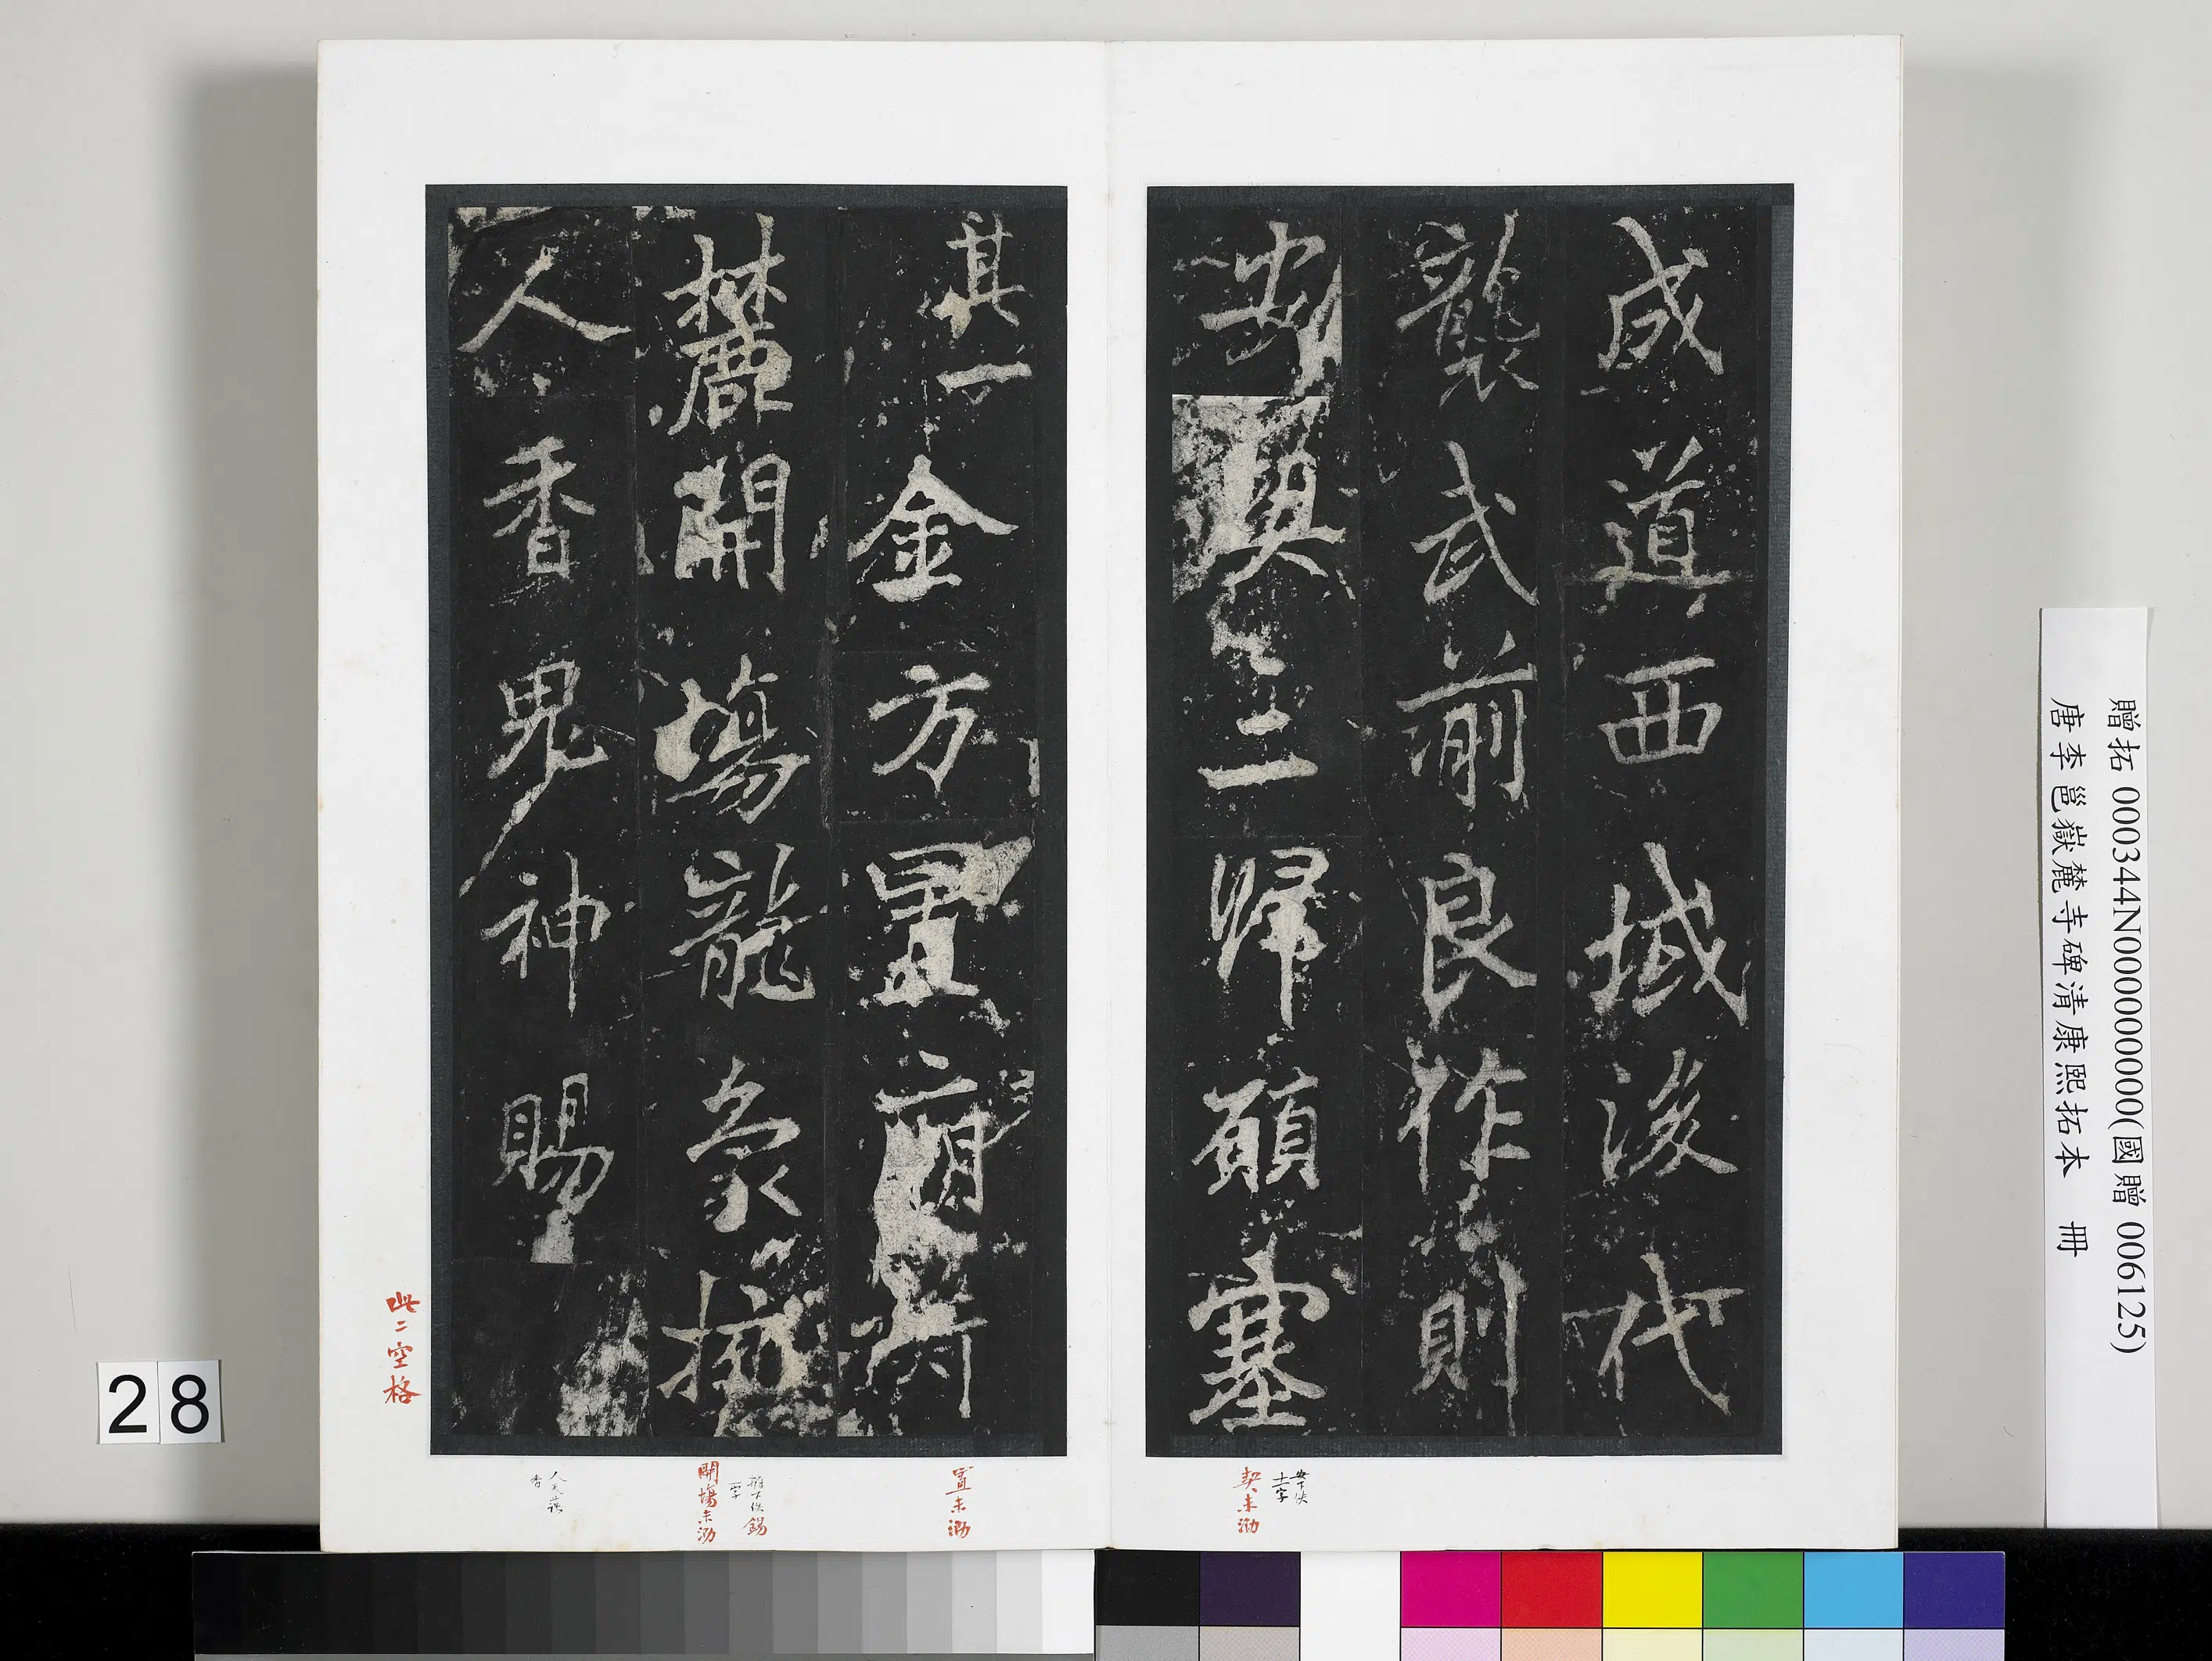 成道西域後代
襲武前良作則
安契三歸願塞
其一金方置廟
麓開場龍象
人香界神賜
此二空格
契未泐
置未泐
錫
一字
開場未泐
人天薩
香
贈拓 000344N000000000(國贈 006125)
唐李邕嶽麓寺碑清康熙拓本 冊
28